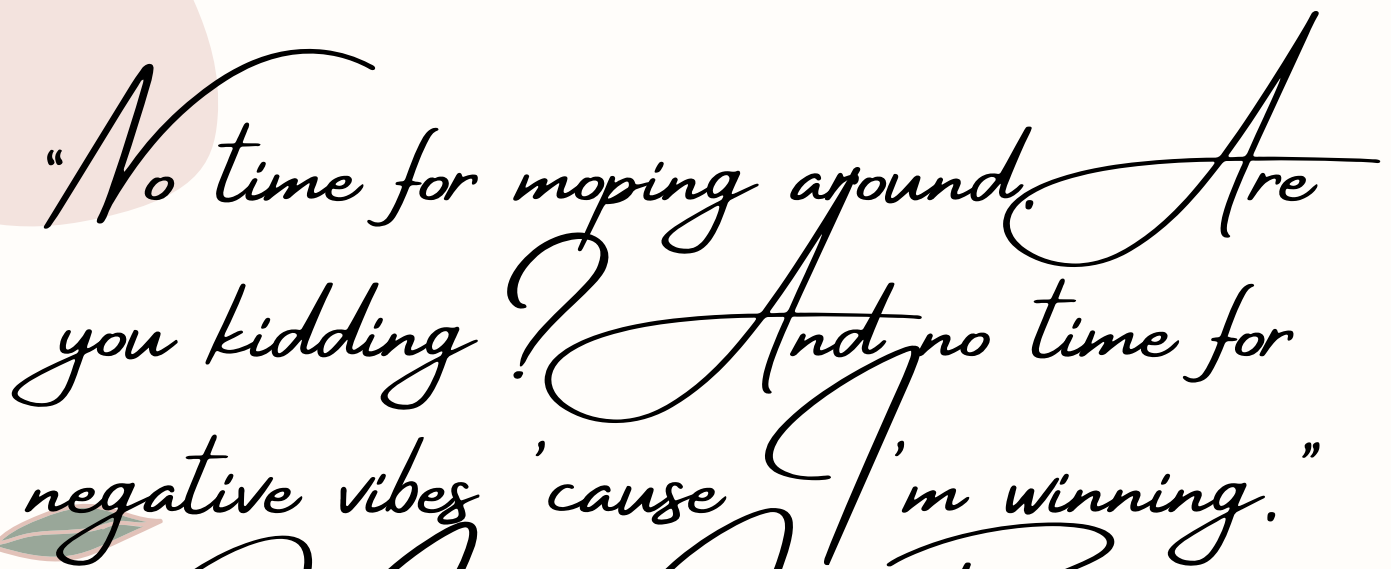 “No time for moping around. Are
you kidding? And no time for
negative vibes ’cause I’m winning.”